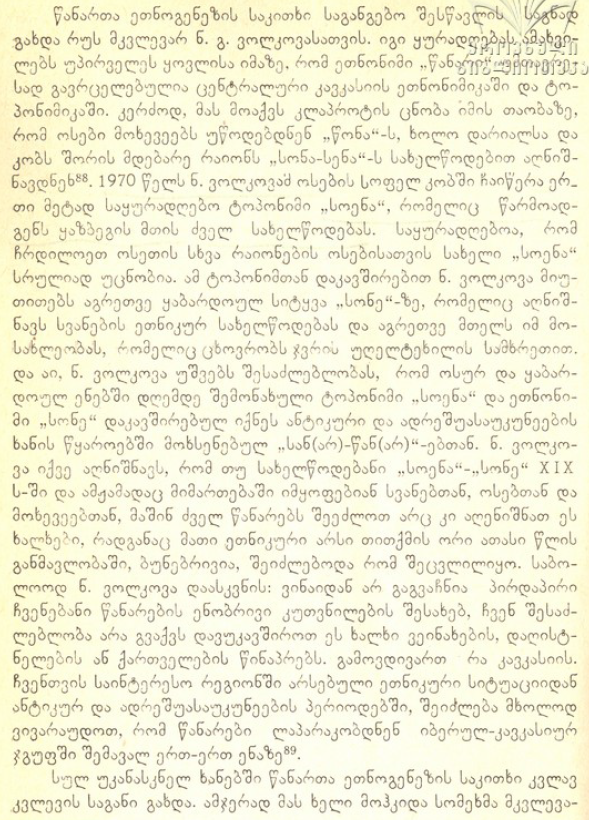 წანართა ეთნოგენეზის საკითხი საგანგებო შესწავლის საგნად
გახდა რუს მკვლევარ ნ. გ. ვოლკოვასათვის. იგი ყურადღებას ამახვი-
ლებს უპირველეს ყოვლისა იმაზე, რომ ეთნონიმი „წანარი“
სად გავრცელებულია ცენტრალური კავკასიის ეთნონიმიკაში და ტო-
პონიმიკაში. კერძოდ, მას მოაქვს კლაპროტის ცნობა იმის თაობაზე,
რომ ოსები მოხევეებს უწოდებდნენ „წონა“-ს, ხოლო დარიალსა და
კობს შორის მდებარე რაიონს „სონა-სენა“-ს სახელწოდებით აღნიშ-
ნავდნენ⁸⁸. 1970 წელს ნ. ვოლკოვამ ოსების სოფელ კობში ჩაიწერა ერ-
თი მეტად საყურადღებო ტოპონიმი „სოენა“, რომელიც წარმოად-
გენს ყაზბეგის მთის ძველ სახელწოდებას. საყურადღებოა, რომ
ჩრდილოეთ ოსეთის სხვა რაიონების ოსებისათვის სახელი „სოენა“
სრულიად უცნობია. ამ ტოპონიმთან დაკავშირებით ნ. ვოლკოვა მიუ-
თითებს აგრეთვე ყაბარდოულ სიტყვა „სონე“-ზე, რომელიც აღნიშ-
ნავს სვანების ეთნიკურ სახელწოდებას და აგრეთვე მთელს იმ მო-
სახლეობას, რომელიც ცხოვრობს ჯვრის უღელტეხილის სამხრეთით.
და აი, ნ. ვოლკოვა უშვებს შესაძლებლობას, რომ ოსურ და ყაბარ-
დოულ ენებში დღემდე შემონახული ტოპონიმი „სოენა“ და ეთნონი-
მი „სონე“ დაკავშირებულ იქნეს ანტიკური და ადრეშუასაუკუნეების
ხანის წყაროებში მოხსენებულ „სან(არ)-წან(არ)“-ებთან. ნ. ვოლკო-
ვა იქვე აღნიშნავს, რომ თუ სახელწოდებანი „სოენა“-„სონე“ XIX
ს-ში და ამჟამადაც მიმართებაში იმყოფებიან სვანებთან, ოსებთან და
მოხევეებთან, მაშინ ძველ წანარებს შეეძლოთ არც კი აღენიშნათ ეს
ხალხები, რადგანაც მათი ეთნიკური არსი თითქმის ორი ათასი წლის
განმავლობაში, ბუნებრივია, შეიძლებოდა რომ შეცვლილიყო. საბო-
ლოოდ ნ. ვოლკოვა დაასკვნის: ვინაიდან არ გაგვაჩნია პირდაპირი
ჩვენებანი წანარების ენობრივი კუთვნილების შესახებ, ჩვენ შესაძ-
ლებლობა არა გვაქვს დავუკავშიროთ ეს ხალხი ვეინახების, დაღისტ-
ნელების ან ქართველების წინაპრებს. გამოვდივართ რა კავკასიის.
ჩვენთვის საინტერესო რეგიონში არსებული ეთნიკური სიტუაციიდან
ანტიკურ და ადრეშუასაუკუნეების პერიოდებში, შეიძლება მხოლოდ
ვივარაუდოთ, რომ წანარები ლაპარაკობდნენ იბერულ-კავკასიურ
ჯგუფში შემავალ ერთ-ერთ ენაზე⁸⁹.
სულ უკანასკნელ ხანებში წანართა ეთნოგენეზის საკითხი კვლავ
კვლევის საგანი გახდა. ამჯერად მას ხელი მოჰკიდა სომეხმა მკვლევა-